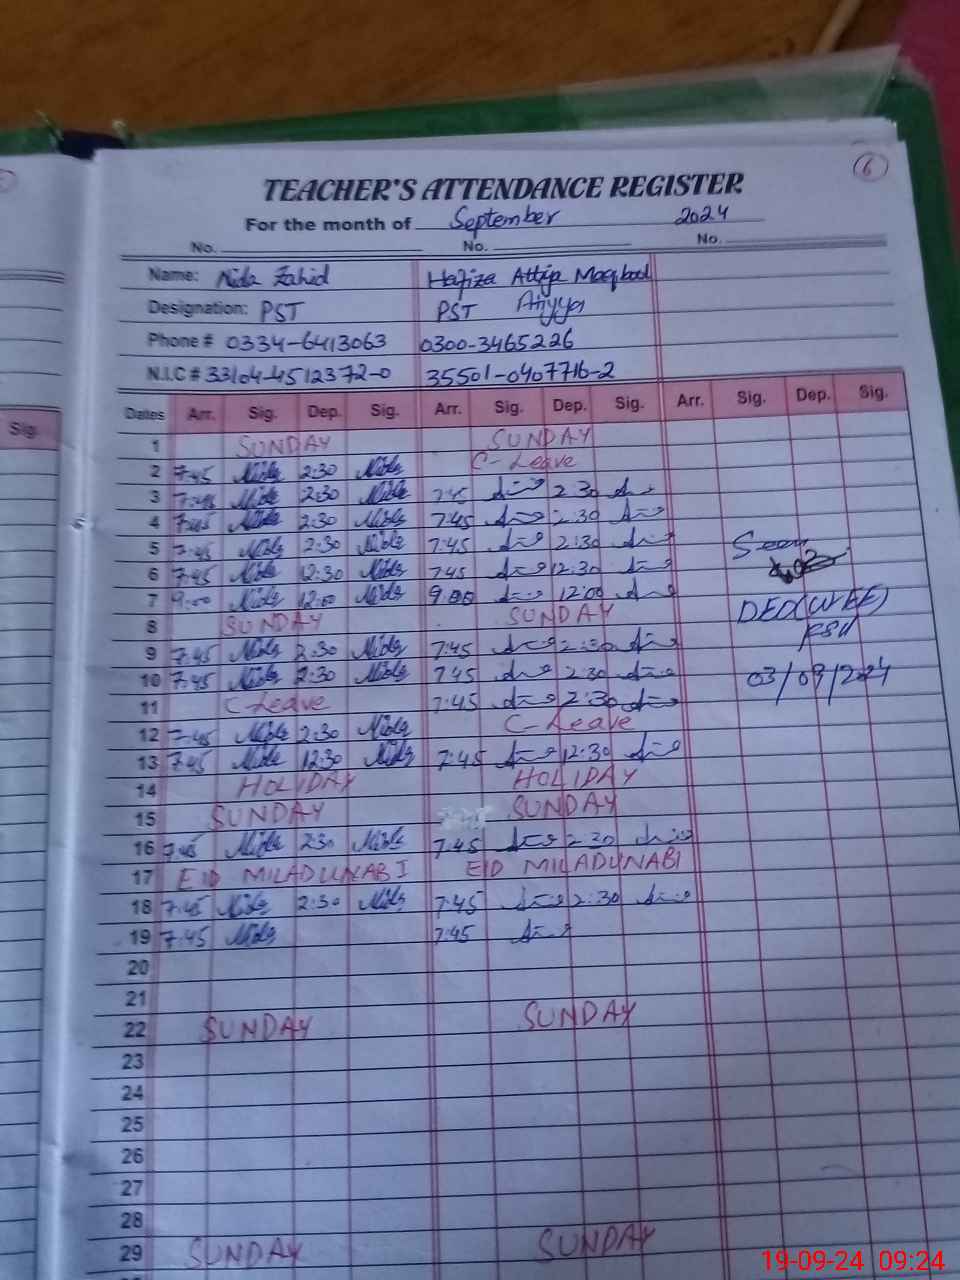 6
TEACHER'S ATTENDANCE REGISTER
For the month of September 2024
No. No. No.
Name: Nida Zahid Hafiza Attiya Maqbool
Designation: PST PST Attiyya
Phone # 0334-6413063 0300-3465226
N.I.C # 33104-4512372-0 35501-0407716-2
Sig.
Dates Arr. Sig. Dep. Sig. Arr. Sig. Dep. Sig. Arr. Sig. Dep. Sig.
1 SUNDAY SUNDAY
2 7:45 Nida 2:30 Nida C-Leave
3 7:45 Nida 2:30 Nida 7:45 2:30
4 7:45 Nida 2:30 Nida 7:45 2:30
5 7:45 Nida 2:30 Nida 7:45 2:30 Seen
6 7:45 Nida 12:30 Nida 7:45 12:30
7 9:00 Nida 12:00 Nida 9:00 12:00 DEO(WEE)
8 SUNDAY SUNDAY KSR
9 7:45 Nida 2:30 Nida 7:45 2:30
10 7:45 Nida 2:30 Nida 7:45 2:30 03/09/2024
11 C-Leave 7:45 2:30
12 7:45 Nida 2:30 Nida C-Leave
13 7:45 Nida 12:30 Nida 7:45 12:30
14 HOLIDAY HOLIDAY
15 SUNDAY SUNDAY
16 7:45 Nida 2:30 Nida 7:45 2:30
17 EID MILADUNABI EID MILADUNABI
18 7:45 Nida 2:30 Nida 7:45 2:30
19 7:45 Nida 7:45
20
21
22 SUNDAY SUNDAY
23
24
25
26
27
28
29 SUNDAY SUNDAY
19-09-24 09:24